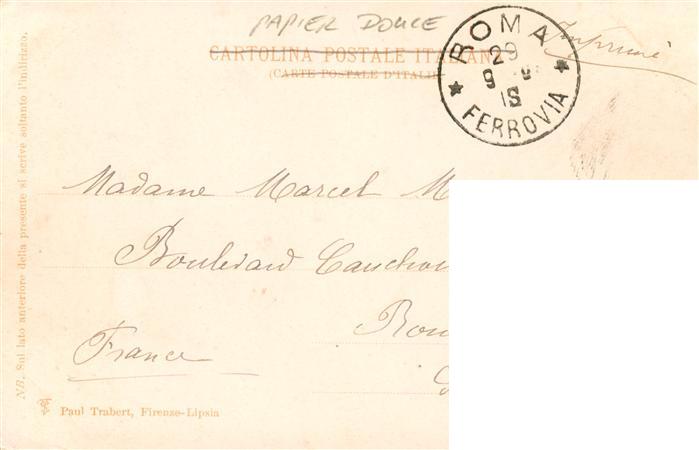 PAPIER DOUCE
Imprimé
CARTOLINA POSTALE ITALIANA
(CARTE POSTALE D'ITALIE
ROMA
29
9
15
FERROVIA
Madame Marcel M
Boulevard Cauchoi
Rou
France
NB. Sul lato anteriore della presente si scrive soltanto l'indirizzo.
Paul Trabert, Firenze-Lipsia